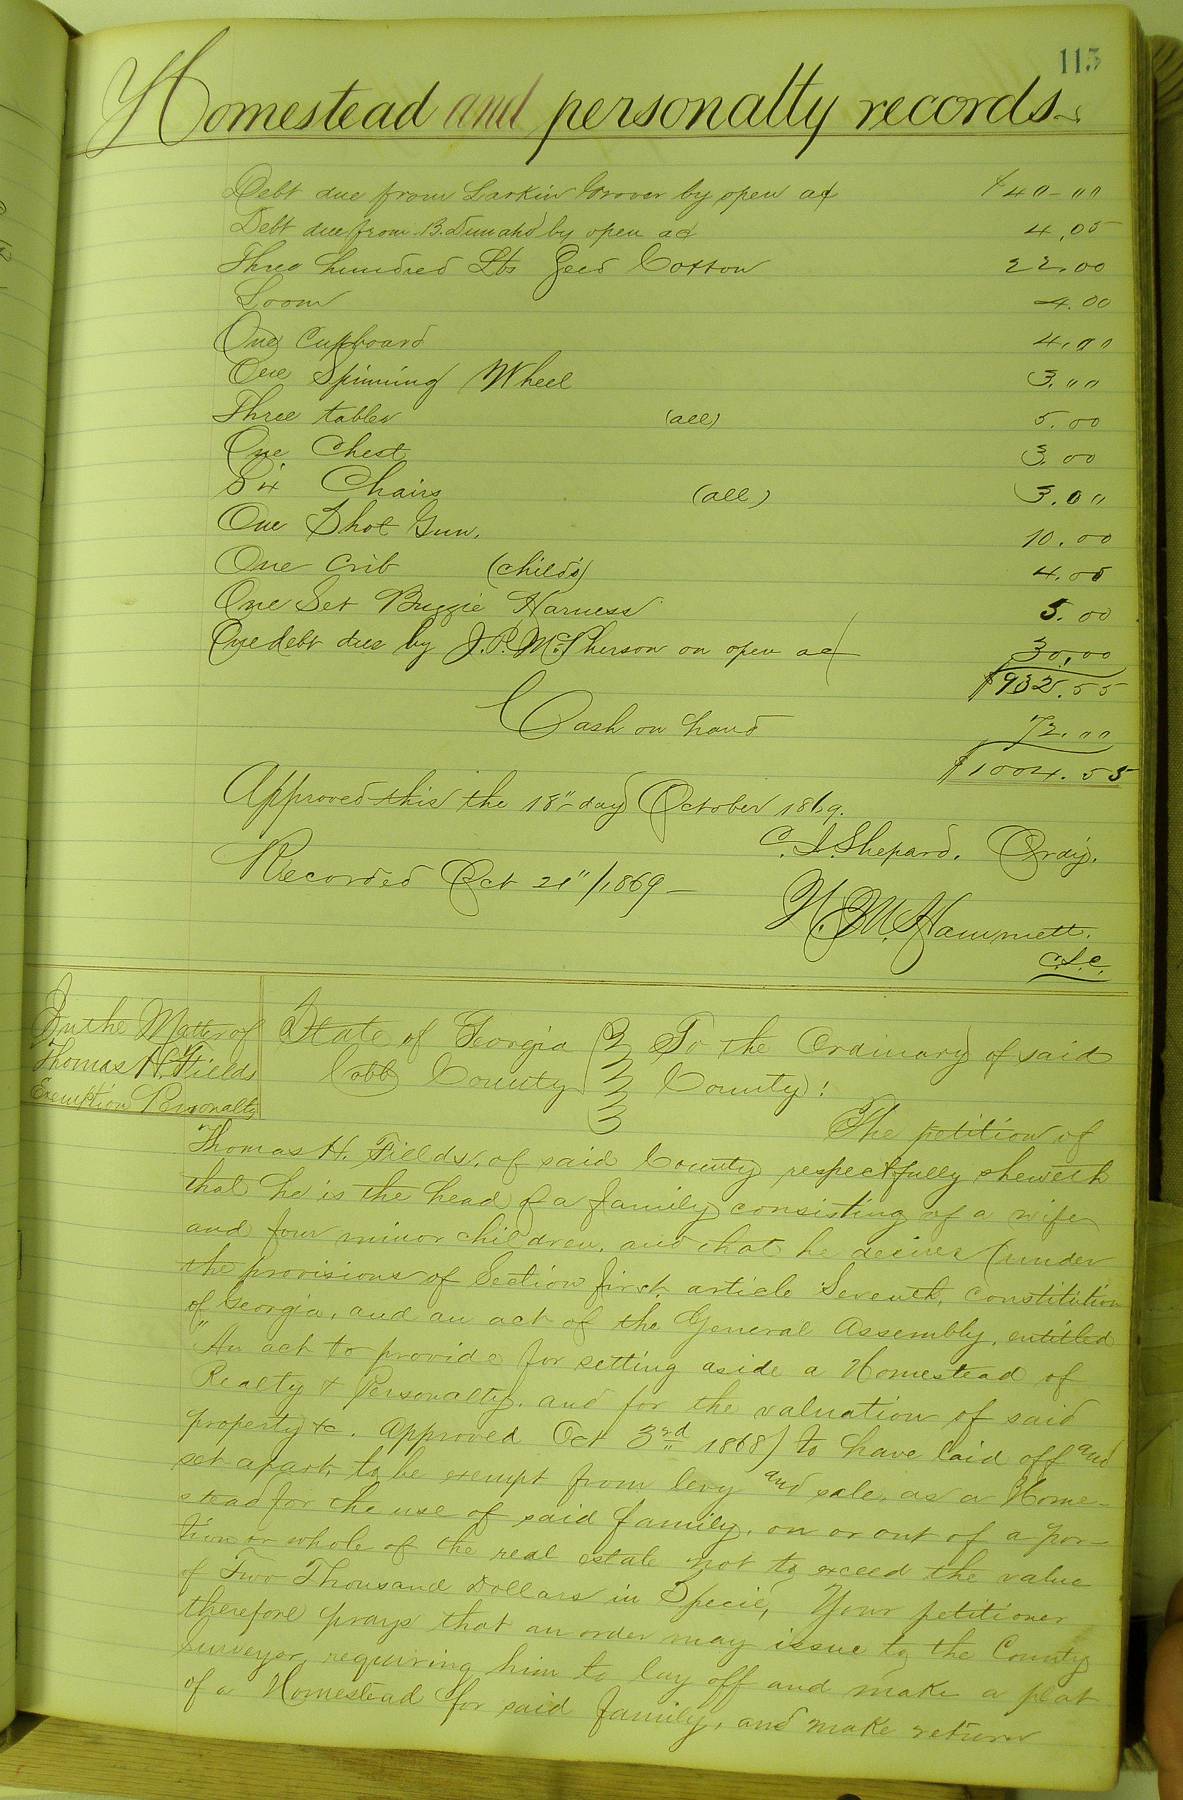 115
Homestead and personalty records
Debt due from Larkin Grover by open act $40.00
Debt due from B. by open act 4.05
Three hundred Lbs Seed Cotton 22.00
Loom 4.00
One Cupboard 4.00
One Spinning Wheel 3.00
Three tables (all) 5.00
One Chest 3.00
Six Chairs (all) 3.00
One Shot Gun. 10.00
One Crib (child's) 4.00
One Set Buggie Harness 5.00
One debt due by J. P. McPherson on open act 30.00
$932.55
Cash on hand 72.00
$1004.55
Approved this the 18" day October 1869.
C. I. Shepard. Ordy.
Recorded Oct 21"/1869 —
N. M. Hammett.
C.S.C.
In the Matter of
Thomas H. Fields
Exemption Personalty
State of Georgia } To the Ordinary of said
Cobb County } County:
The petition of
Thomas H. Fields, of said County respectfully sheweth
that he is the head of a family consisting of a wife
and four minor children, and that he desires (under
the provisions of Section first, article Seventh, constitution
of Georgia, and an act of the General Assembly, entitled
"An act to provide for setting aside a Homestead of
Realty & Personalty, and for the valuation of said
property &c. Approved Oct 3rd 1868) to have laid off and
set apart, to be exempt from levy and sale, as a Home-
stead for the use of said family, on or out of a por-
tion or whole of the real estate not to exceed the value
of Two Thousand Dollars in Specie, Your petitioner
therefore prays that an order may issue to the County
Surveyor, requiring him to lay off and make a plat
of a Homestead for said family, and make return